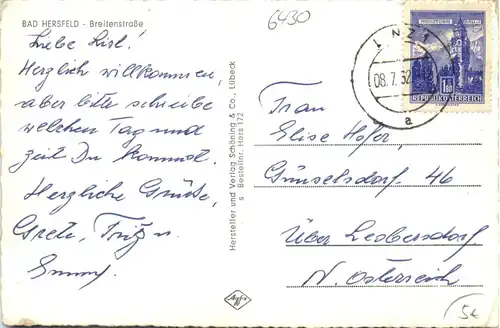 BAD HERSFELD - Breitenstraße
6430
Liebe Lisl!
Herzlich willkommen,
aber bitte schreibe
welchen Tag und
Zeit Du kommst.
Herzliche Grüße,
Grete, Fritz u.
Emmy.
Hersteller und Verlag Schöning & Co., Lübeck
s Bestellnr. Hers 172
Agfa
LINZ 1
08.7.32
a
1.80
REPUBLIK ÖSTERREICH
Frau
Elise Hofer,
Günselsdorf. 46
Über Leobersdorf
N. Österreich